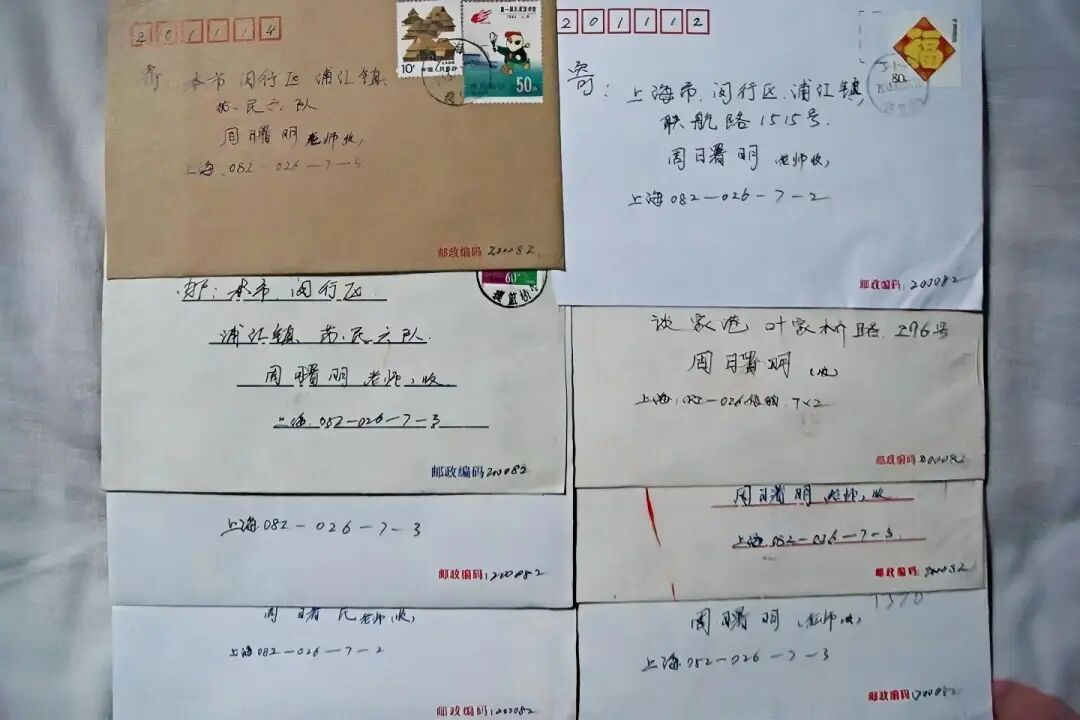 201114
10分
50分
寄: 本市 闵行区 浦江镇
六队
周曙明 老师 收,
上海 082-026-7-3
邮政编码 200082.
201112
福
80分
寄: 上海市. 闵行区. 浦江镇,
联航路1515号.
周曙明 老师收,
上海 082-026-7-2
邮政编码: 200082
60
邮: 本市. 闵行区
浦江镇. 六队.
周曙明 老师, 收
上海. 082-026-7-3
邮政编码 200082
谈家港 叶家桥路. 276号
周曙明 (收)
上海: 082-026 7×2
邮政编码 200082
上海 082-026-7-3
邮政编码: 200082
周曙明 老师, 收
上海. 082-026-7-3.
邮政编码: 200082
周曙民 老师(收)
上海 082-026-7-2
邮政编码: 200082
1370
周曙明 (老师收)
上海 082-026-7-3
邮政编码: 200082